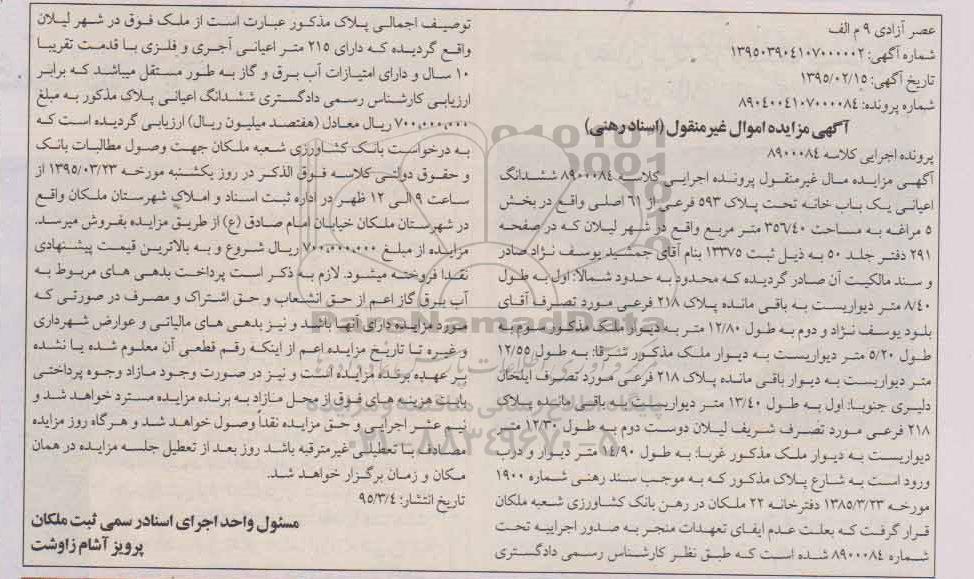 عصر آزادی ۹ م الف
شماره آگهی: ۱۳۹۵۰۳۹۰۴۱۰۷۰۰۰۰۰۲
تاریخ آگهی: ۱۳۹۵/۰۲/۱۵
شماره پرونده: ۸۹۰۴۰۰۴۱۰۷۰۰۰۰۸۴
آگهی مزایده اموال غیرمنقول (اسناد رهنی)
پرونده اجرایی کلاسه ۸۹۰۰۰۸۴
آگهی مزایده مال غیرمنقول پرونده اجرایی کلاسه ۸۹۰۰۰۸۴ ششدانگ
اعیانی یک باب خانه تحت پلاک ۵۹۳ فرعی از ۶۱ اصلی واقع در بخش
۵ مراغه به مساحت ۳۵۶/۴۰ متر مربع واقع در شهر لیلان که در صفحه
۲۹۱ دفتر جلد ۵۰ به ذیل ثبت ۱۳۳۷۵ بنام آقای جمشید یوسف نژاد صادر
و سند مالکیت آن صادر گردیده که محدود به حدود شمالا: اول به طول
۸/۴۰ متر دیواریست به باقی مانده پلاک ۲۱۸ فرعی مورد تصرف آقای
بلود یوسف نژاد و دوم به طول ۱۲/۸۰ متر به دیوار ملک مذکور سوم به
طول ۵/۲۰ متر دیواریست به دیوار ملک مذکور شرقا: به طول ۱۲/۵۵
متر دیواریست به دیوار باقی مانده پلاک ۲۱۸ فرعی مورد تصرف ایلخان
دلیری جنوبا: اول به طول ۱۳/۴۰ متر دیواریست به باقی مانده پلاک
۲۱۸ فرعی مورد تصرف شریف لیلان دوست دوم به طول ۱۲/۳۰ متر
دیواریست به دیوار ملک مذکور غربا: به طول ۱۴/۹۰ متر دیوار و درب
ورود است به شارع پلاک مذکور که به موجب سند رهنی شماره ۱۹۰۰
مورخه ۱۳۸۵/۳/۲۳ دفترخانه ۲۲ ملکان در رهن بانک کشاورزی شعبه ملکان
قرار گرفت که بعلت عدم ایفای تعهدات منجر به صدور اجراییه تحت
شماره ۸۹۰۰۰۸۴ شده است که طبق نظر کارشناس رسمی دادگستری
توصیف اجمالی پلاک مذکور عبارت است از ملک فوق در شهر لیلان
واقع گردیده که دارای ۲۱۵ متر اعیانی آجری و فلزی با قدمت تقریبا
۱۰ سال و دارای امتیازات آب برق و گاز به طور مستقل میباشد که برابر
ارزیابی کارشناس رسمی دادگستری ششدانگ اعیانی پلاک مذکور به مبلغ
۷۰۰,۰۰۰,۰۰۰ ریال معادل (هفتصد میلیون ریال) ارزیابی گردیده است که
به درخواست بانک کشاورزی شعبه ملکان جهت وصول مطالبات بانک
و حقوق دولتی کلاسه فوق الذکر در روز یکشنبه مورخه ۱۳۹۵/۰۳/۲۳ از
ساعت ۹ الی ۱۲ ظهر در اداره ثبت اسناد و املاک شهرستان ملکان واقع
در شهرستان ملکان خیابان امام صادق (ع) از طریق مزایده بفروش میرسد.
مزایده از مبلغ ۷۰۰,۰۰۰,۰۰۰ ریال شروع و به بالاترین قیمت پیشنهادی
نقدا فروخته میشود. لازم به ذکر است پرداخت بدهی های مربوط به
آب برق گاز اعم از حق انشعاب و حق اشتراک و مصرف در صورتی که
مورد مزایده دارای آنها باشد و نیز بدهی های مالیاتی و عوارض شهرداری
و غیره تا تاریخ مزایده اعم از اینکه رقم قطعی آن معلوم شده یا نشده
بر عهده برنده مزایده است و نیز در صورت وجود مازاد وجوه پرداختی
بابت هزینه های فوق از محل مازاد به برنده مزایده مسترد خواهد شد و
نیم عشر اجرایی و حق مزایده نقداً وصول خواهد شد و هرگاه روز مزایده
مصادف با تعطیلی غیرمترقبه باشد روز بعد از تعطیل جلسه مزایده در همان
مکان و زمان برگزار خواهد شد.
تاریخ انتشار: ۹۵/۳/۴
مسئول واحد اجرای اسناد رسمی ثبت ملکان
پرویز آشام زاوشت
ParsNamadData
پایگاه اطلاع رسانی مناقصه و مزایده
۰۲۱-۸۸۳۴۹۶۷۰-۵